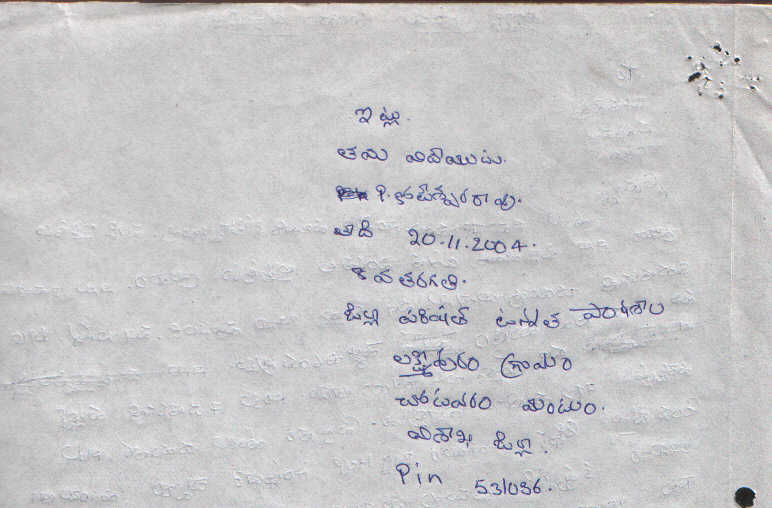 ఇట్లు.
తమ విదేయుడు.
P. కోటేశ్వరరావు.
తేది 20.11.2004.
8 వ తరగతి.
జిల్లా పరిషత్ ఉన్నత పాఠశాల
లక్ష్మీపురం గ్రామం
చోడవరం మండలం.
విశాఖ జిల్లా.
Pin 531036.